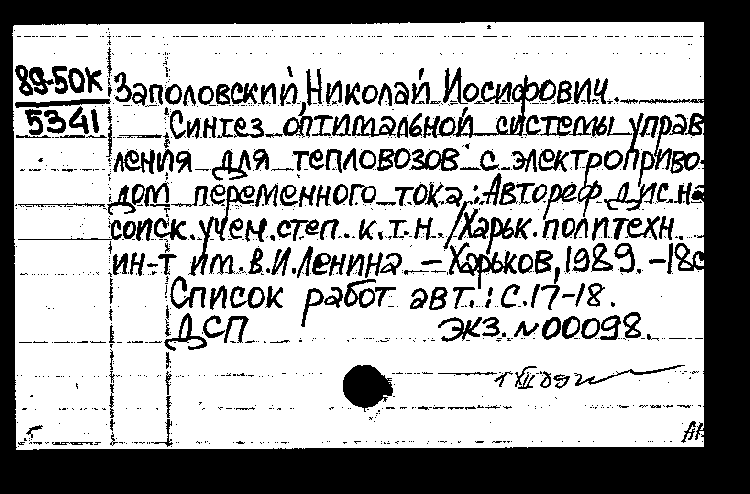 89-50К Заполовский, Николай Иосифович.
5341 Синтез оптимальной системы управ
ления для тепловозов с электроприво-
дом переменного тока.: Автореф. дис. на
соиск. учем. степ. к.т.н. / Харьк. политехн.
ин-т им. В.И. Ленина. – Харьков, 1989. – 18с
Список работ авт.: С.17-18.
ДСП экз. №00098.